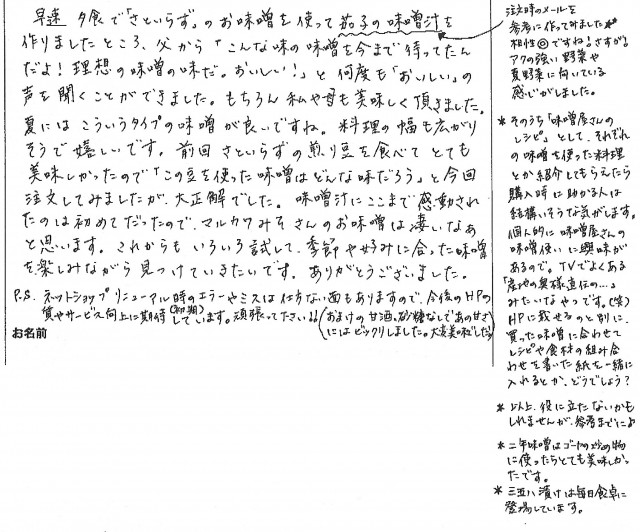 早速 夕食で「さといらず」のお味噌を使って茄子の味噌汁を
作りましたところ、父から「こんな味の味噌を今まで待ってたん
だよ!理想の味噌の味だ。おいしい!」と何度も「おいしい」の
声を聞くことができました。もちろん私や母も美味しく頂きました。
夏にはこういうタイプの味噌が良いですね。料理の幅も広がり
そうで嬉しいです。前回さといらずの煎り豆を食べてとても
美味しかったので「この豆を使った味噌はどんな味だろう」と今回
注文してみましたが、大正解でした。味噌汁にここまで感動され
たのは初めてだったので、マルカワみそさんのお味噌は凄いなあ
と思います。これからもいろいろ試して、季節や好みに合った味噌
を楽しみながら見つけていきたいです。ありがとうございました。
P.S. ネットショップリニューアル時のエラーやミスは仕方ない面もありますので、今後のHPの
質やサービス向上に期待(初期)しています。頑張って下さい!!
(おまけの甘酒、砂糖なしであの甘さ
にはビックリしました。大変美味でした。)
お名前
注文時のメールを
参考に作ってみました
相性◎ですね!さすが!
アクの強い野菜や
夏野菜に向いている
感じがしました。
*そのうち「味噌屋さんの
レシピ」として、それぞれ
の味噌を使った料理
とか紹介してもらえたら
購入時に助かる人は
結構いそうな気がします。
個人的に味噌屋さんの
味噌使いに興味が
あるので。TVでよくある
「産地の奥様直伝の…」
みたいなやつです。(笑)
HPに載せるのと別に、
買った味噌に合わせて
レシピや食材の組み合
わせを書いた紙を一緒に
入れるとか、どうでしょう?
*以上、役に立たないかも
しれませんが、参考までに
*二年味噌はゴーヤの炒め物
に使ったらとても美味しかっ
たです。
*三五八漬けは毎日食卓に
登場しています。